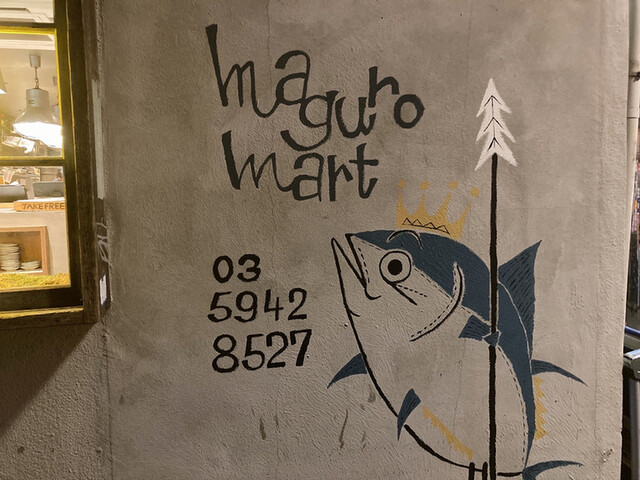 maguro
mart
03
5942
8527
TAKE FREE